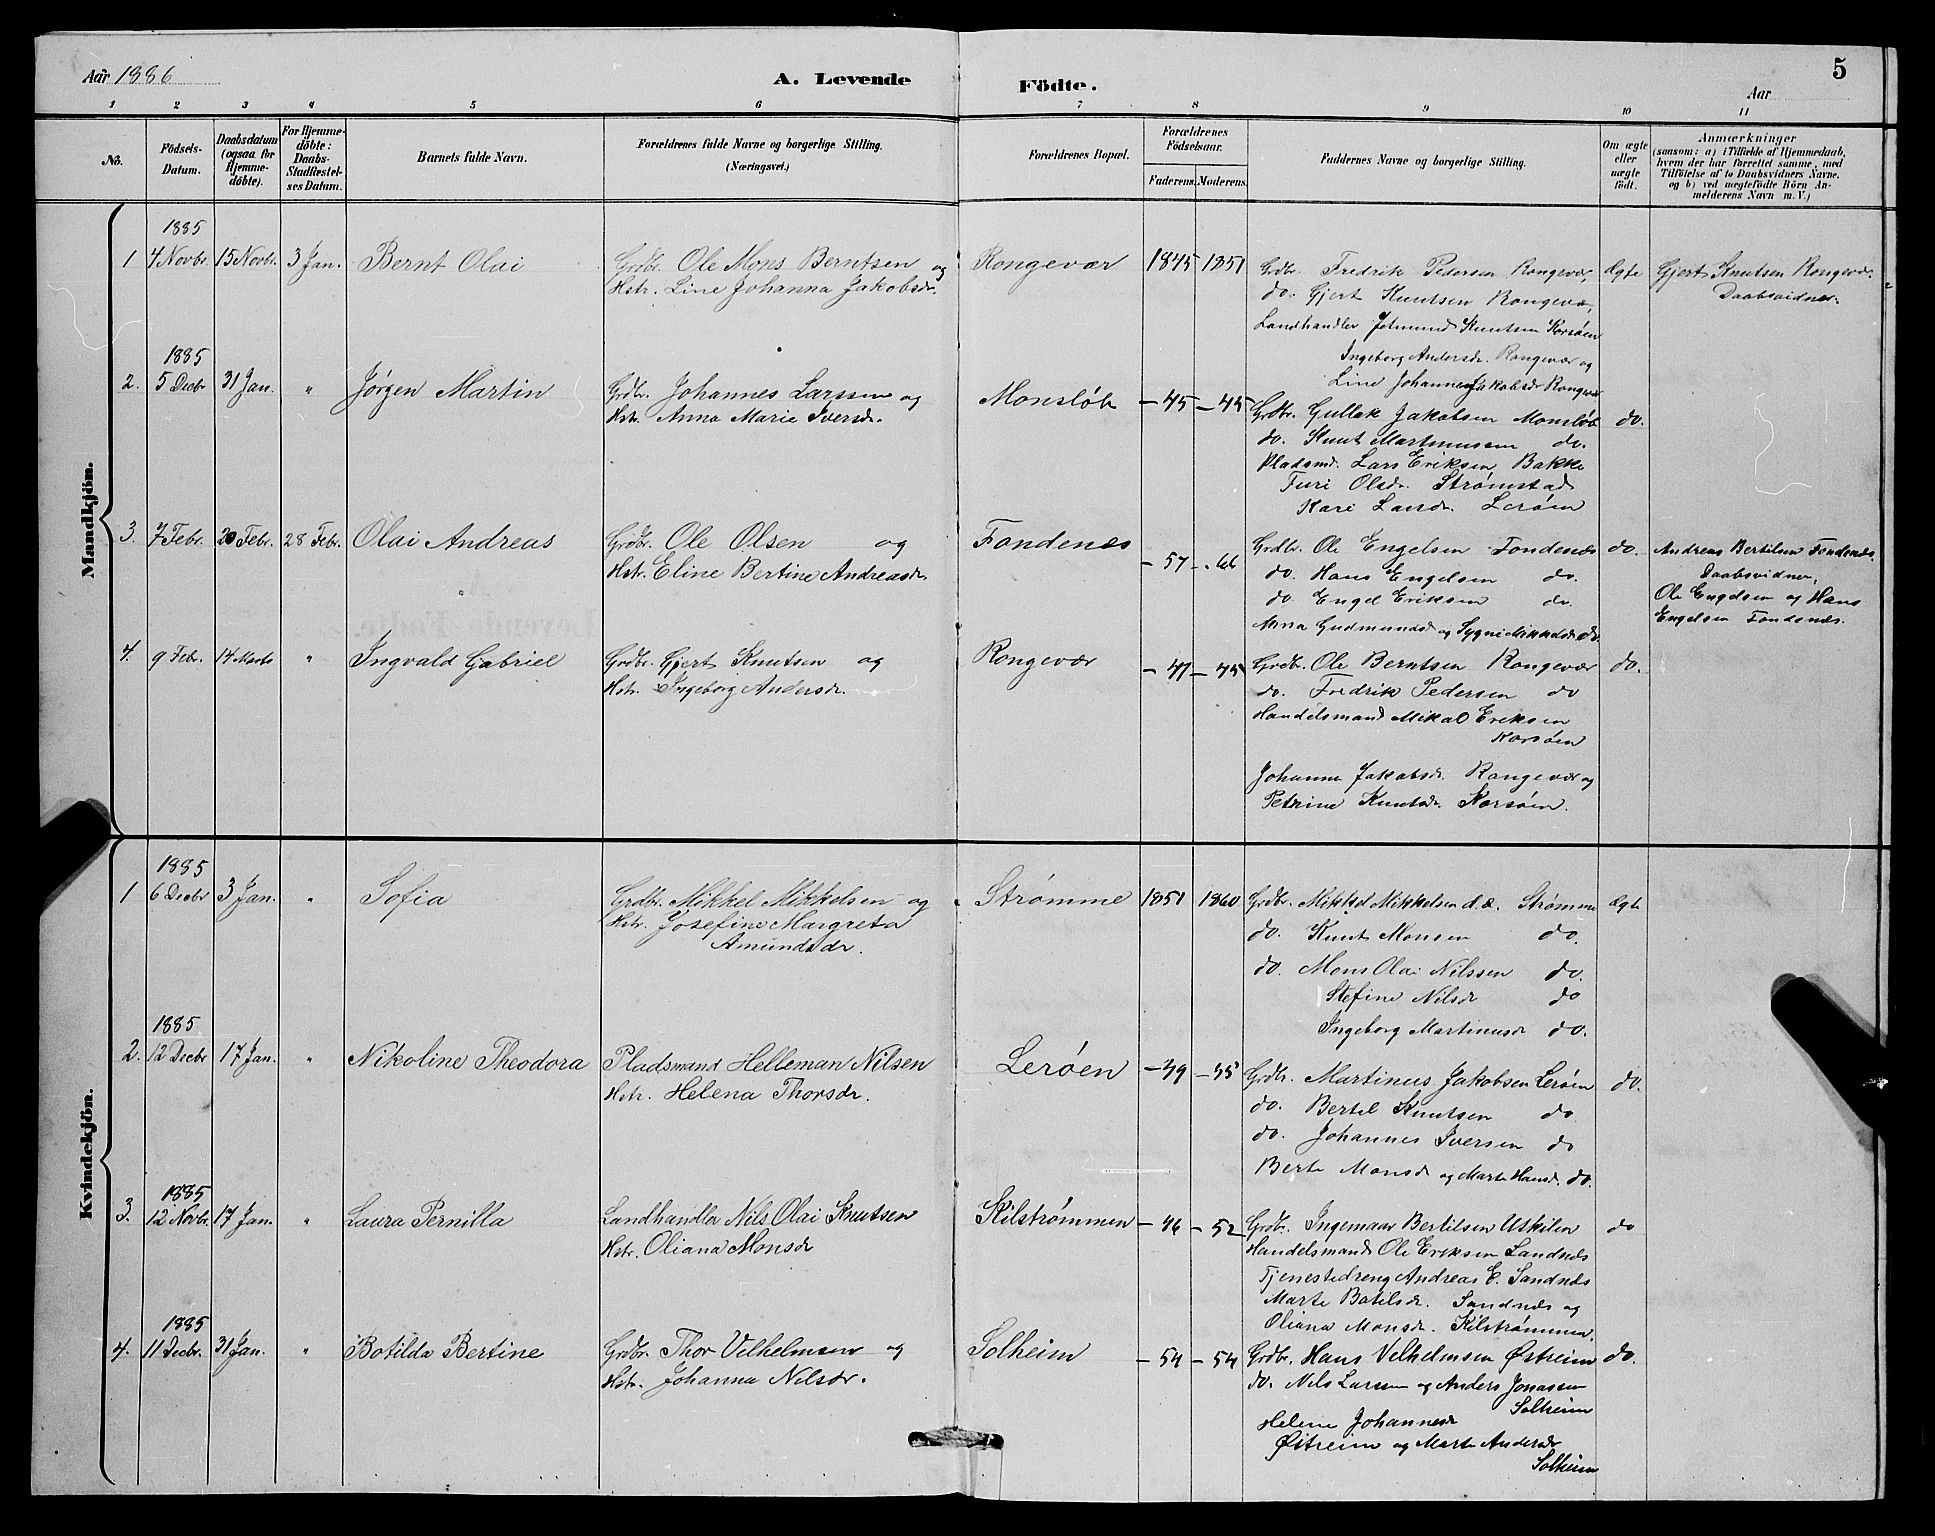 Aar 1886
A. Levende
Födte.
5
Aar
1 2 3 4 5 6 7 8 9 10 11
No.
Födsels-
Datum.
Daabsdatum
(ogsaa for
Hjemme-
döbte).
For Hjemme-
döbte:
Daabs-
Stadfestel-
ses Datum.
Barnets fulde Navn.
Forældrenes fulde Navne og borgerlige Stilling.
(Næringsvei.)
Forældrenes Bopæl.
Forældrenes
Födselsaar.
Faderens. Moderens.
Faddernes Navne og borgerlige Stilling.
Om ægte
eller
uægte
födt.
Anmærkninger
(saasom: a) i Tilfælde af Hjemmedaab,
hvem der har forrettet samme, med
Tilföielse af to Daabsvidners Navne.
og b) ved uægtefödte Börn An-
melderens Navn m. V.)
Mandkjön.
1885
1 4 Novbr. 15 Novbr. 3 Jan. Bernt Olai
Grdbr. Ole Mons Berntsen og
Hstr. Line Johanna Jakobsdr.
Rongevær 1845 1851
Grdbr. Fredrik Pedersen Rongevær,
do. Gjert Knutsen Rongevær,
Landhandler Jetmund Knutsen Korsøen
Ingeborg Andersdr. Rongevær og
Line Johanne Jakobsdr Rongevær
Ægte
Gjert Knutsen Rongevær.
Daabsvidner.
1885
2. 5 Decbr 31 Jan. " Jørgen Martin
Grdbr. Johannes Larssen og
Hstr. Anna Marie Iversdr.
Monsløb — 45 — 45
Grdbr. Gullak Jakobsen Monsløb
do. Knut Martinussen do.
Pladsmd. Lars Eriksen Bakke
Turi Olsdr. Strømstad
Kari Larsdr. Lerøen
do.
3. 7 Febr. 20 Febr. 28 Febr. Olai Andreas
Grdbr. Ole Olsen og
Hstr. Eline Bertine Andreasdr
Fondenæs — 57 — 66
Grdbr. Ole Engelsen Fondenæs
do. Hans Engelsen do.
do. Engel Eriksen do.
Anna Gudmundsdr og Sygni Mikkelsdr do.
do.
Andreas Bertilsen Fondenæs.
Daabsvidner,
Ole Engelsen og Hans
Engelsen Fondenæs.
4. 9 Febr. 14 Marts " Ingvald Gabriel
Grdbr. Gjert Knutsen og
Hstr. Ingeborg Andersdr.
Rongevær — 47 — 45
Grdbr. Ole Berntsen Rongevær
do. Fredrik Pedersen do
Handelsmand Mikal Eriksen
Korsøen
Johanna Jakobsdr. Rongevær og
Petrine Knutsdr. Korsøen.
do.
Kvindekjön.
1885
1 6 Decbr 3 Jan. " Sofia
Grdbr. Mikkel Mikkelsen og
Hstr. Josefine Margreta
Amundsdr.
Strømme 1851 1860
Grdbr. Mikkel Mikkelsen d.æ. Strømme
do. Knut Monsen do.
do. Mons Olai Nilssen do.
Stefine Nilsdr do
Ingeborg Martinusdr do.
Ægte
1885
2. 12 Decbr 17 Jan. " Nikoline Theodora
Pladsmand Helleman Nilsen
Hstr. Helena Thorsdr.
Lerøen — 39 — 35
Grdbr. Martinus Jakobsen Lerøen
do. Bertel Knutsen do
do. Johannes Iversen do
Berte Monsdr og Marte Hansdr. do.
do.
1885
3. 12 Novbr. 17 Jan. " Laura Pernilla
Landhandler Nils Olai Knutsen
Hstr. Oliana Monsdr
Kilstrømmen — 46 — 52
Grdbr. Ingemaar Bertilsen Utkilen
Handelsmand Ole Eriksen Sandnæs
Tjenestedreng Andreas E. Sandnæs
Marte Botilsdr. Sandnæs og
Oliana Monsdr. Kilstrømmen.
do
1885
4. 11 Decbr. 31 Jan. " Botilda Bertine
Grdbr. Thor Velhelmsen og
Hstr. Johanna Nilsdr.
Solheim — 54 — 54
Grdbr. Hans Velhelmsen Østreim
do. Nils Larssen og Anders Jonassen
Solheim
Helene Johannesdr
Østreim og Marta Andersdr
Solheim
do.